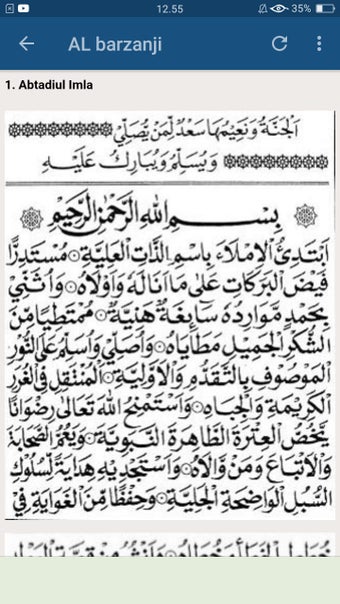 12.55
35%
AL barzanji
1. Abtadiul Imla
اَلْجَنَّةُ وَنَعِيْمُهَا سَعْدٌ لِّمَنْ يُصَلِّيْ
وَيُسَلِّمُ وَيُبَارِكُ عَلَيْهِ
بِسْمِ اللهِ الرَّحْمٰنِ الرَّحِيْمِ
اَبْتَدِئُ الْاِمْلَاءَ بِاسْمِ الذَّاتِ الْعَلِيَّةِ ۞ مُسْتَدِرًّا
فَيْضَ الْبَرَكَاتِ عَلٰى مَا اَنَالَهُ وَاَوْلَاهُ ۞ وَاُثَنِّيْ
بِحَمْدٍ مَّوَارِدُهُ سَائِغَةٌ هَنِيَّةٌ ۞ مُمْتَطِيًا مِّنَ
الشُّكْرِ الْجَمِيْلِ مَطَايَاهُ ۞ وَاُصَلِّيْ وَاُسَلِّمُ عَلَى النُّوْرِ
الْمَوْصُوْفِ بِالتَّقَدُّمِ وَالْاَوَّلِيَّةِ ۞ الْمُنْتَقِلِ فِي الْغُرَرِ
الْكَرِيْمَةِ وَالْجِبَاهِ ۞ وَاَسْتَمْنِحُ اللهَ تَعَالٰى رِضْوَانًا
يَّخُصُّ الْعِتْرَةَ الطَّاهِرَةَ النَّبَوِيَّةَ ۞ وَيَعُمُّ الصَّحَابَةَ
وَالْاَتْبَاعَ وَمَنْ وَالَاهُ ۞ وَاَسْتَجْدِيْهِ هِدَايَةً لِّسُلُوْكِ
السُّبُلِ الْوَاضِحَةِ الْجَلِيَّةِ ۞ وَحِفْظًا مِّنَ الْغَوَايَةِ فِيْ